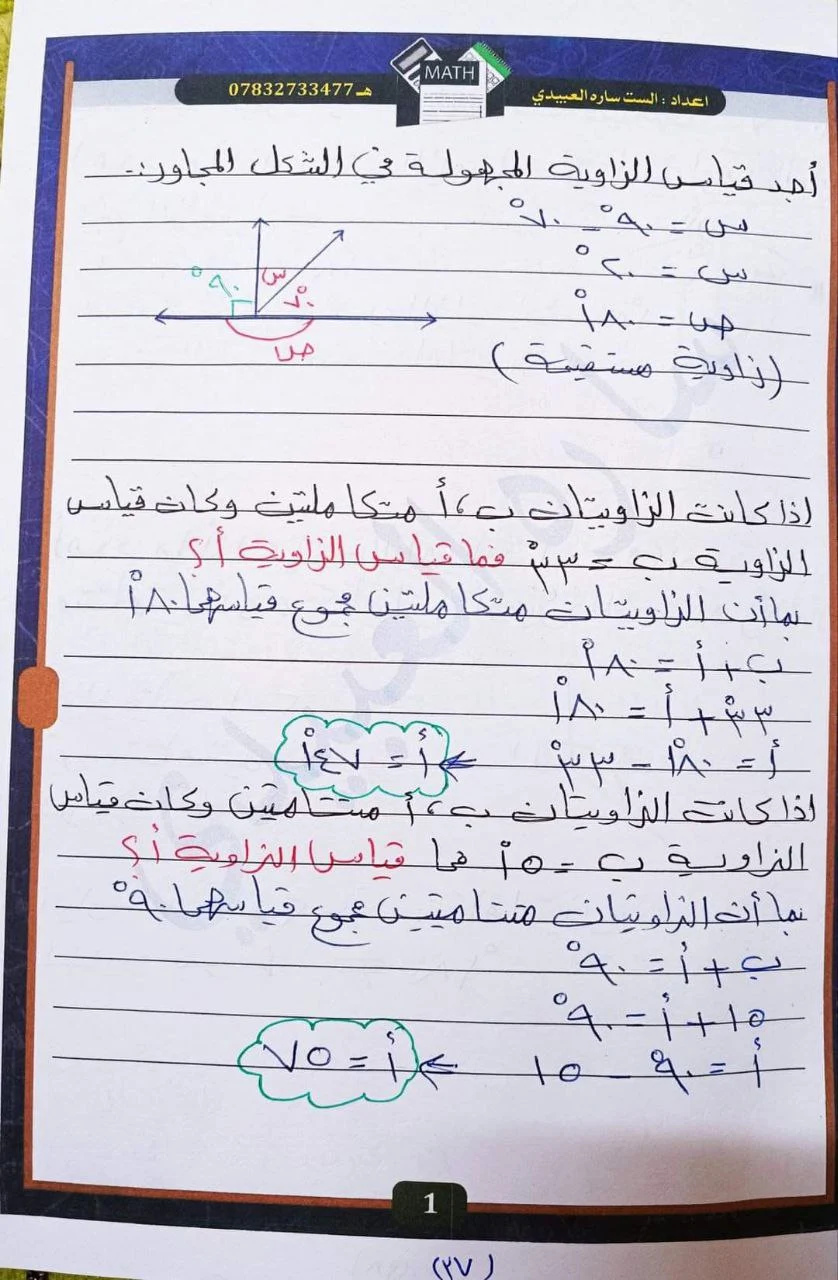 اعداد : الست ساره العبيدي
MATH
هـ 07832733477
أجد قياس الزاوية المجهولة في الشكل المجاور:-
س = ٩٠° - ٧٠°
س = ٢٠°
ص = ١٨٠°
(زاوية مستقيمة)
٩٠°
س
٧٠°
ص
اذا كانت الزاويتان ب، أ متكاملتين وكان قياس
الزاوية ب = ٣٣° فما قياس الزاوية أ؟
بما أن الزاويتان متكاملتين مجموع قياسهما ١٨٠°
ب + أ = ١٨٠°
٣٣° + أ = ١٨٠°
أ = ١٨٠° - ٣٣° ← أ = ١٤٧°
اذا كانت الزاويتان ب، أ متتامتين وكان قياس
الزاوية ب = ١٥° ما قياس الزاوية أ؟
بما أن الزاويتان متتامتين مجموع قياسهما ٩٠°
ب + أ = ٩٠°
١٥ + أ = ٩٠°
أ = ٩٠° - ١٥ ← أ = ٧٥
ساره العبيدي
1
(٣٧)